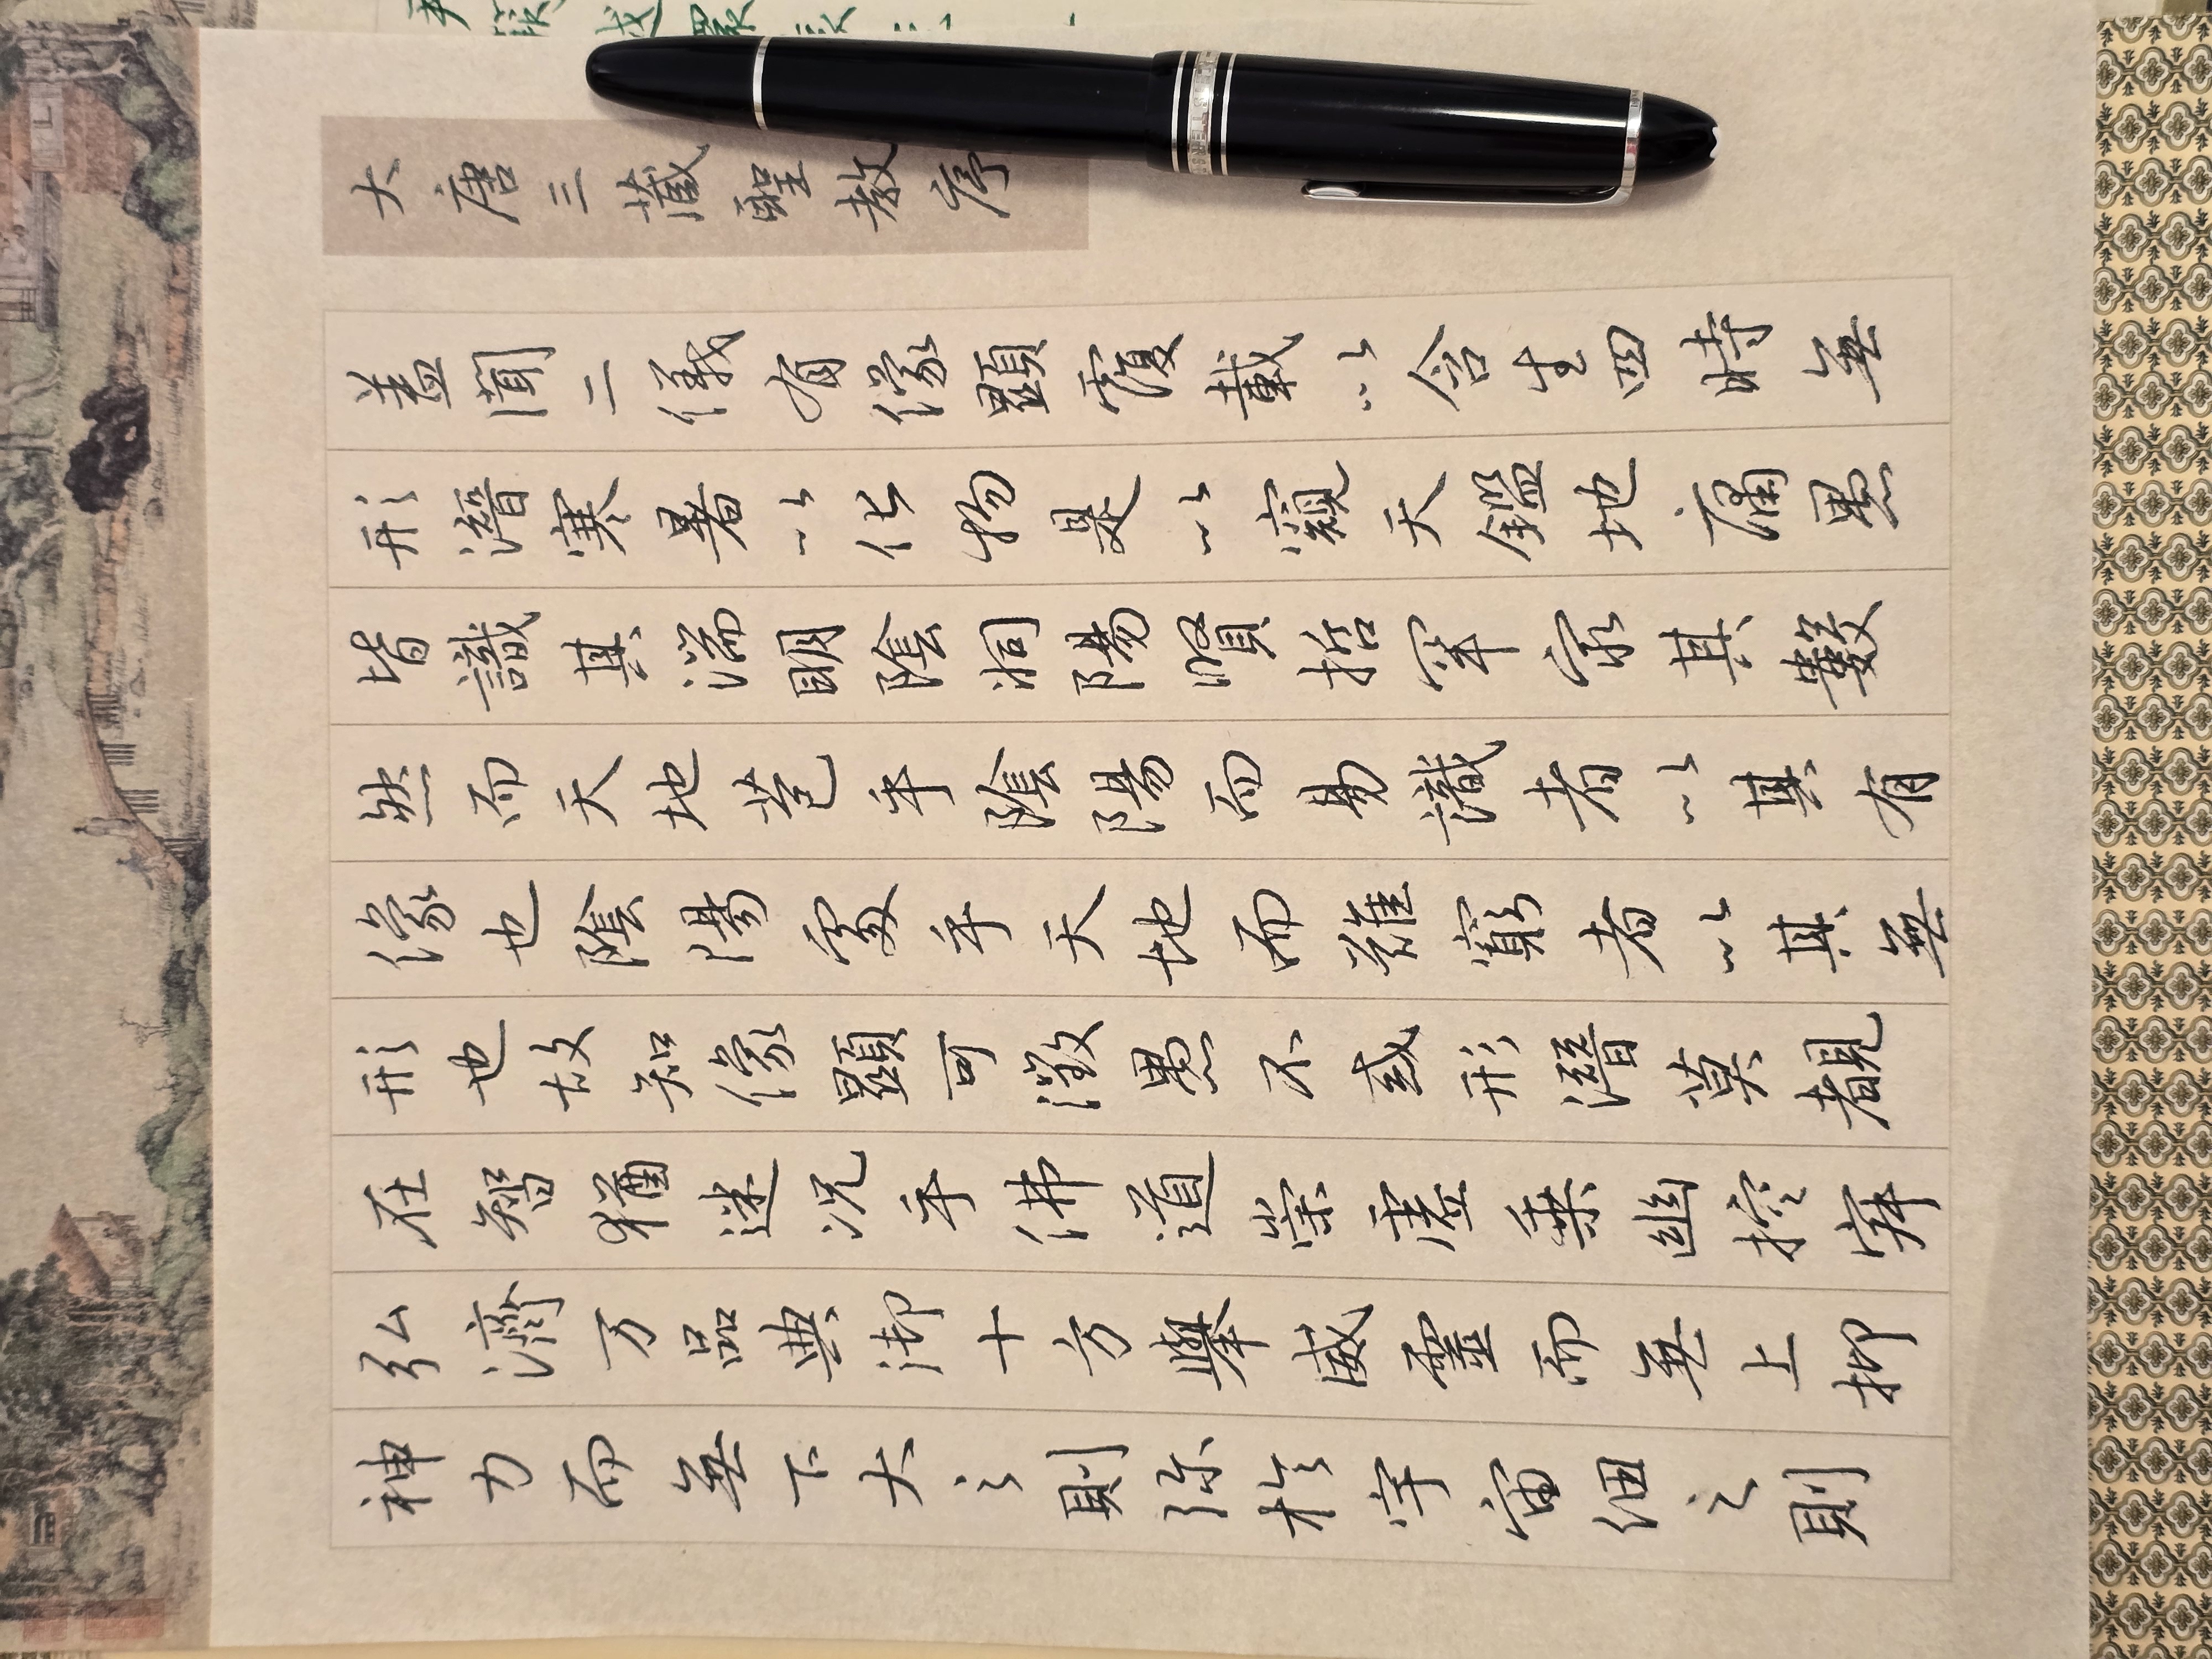 大唐三藏聖教序
蓋聞二儀有像顯覆載以含生四時無
形潛寒暑以化物是以窺天鑑地庸愚
皆識其端明陰洞陽賢哲罕窮其數
然而天地苞乎陰陽而易識者以其有
像也陰陽處乎天地而難窮者以其無
形也故知像顯可徵愚不惑形潛莫覩
在智猶迷況乎佛道崇虛乗幽控寂
弘濟万品典御十方舉威靈而無上抑
神力而無下大之則弥於宇宙細之則